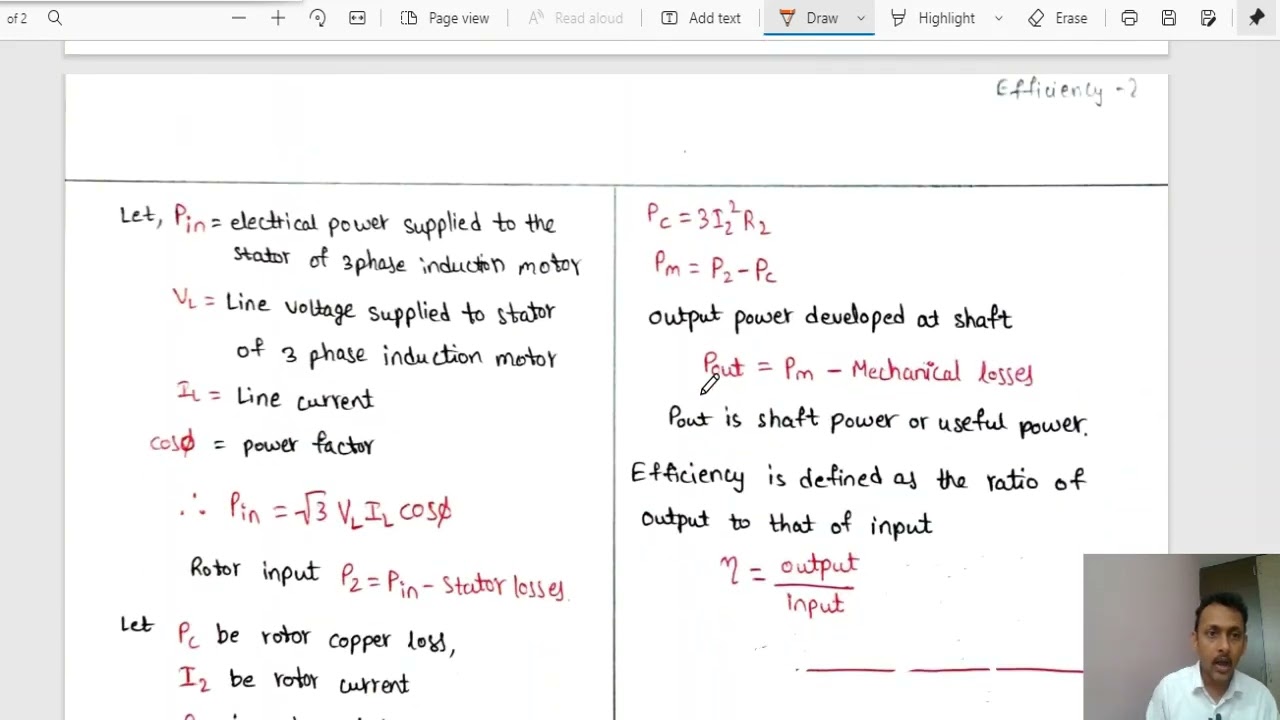 of 2
Page view
Read aloud
Add text
Draw
Highlight
Erase
Efficiency - 2
Let, Pin = electrical power supplied to the
stator of 3phase induction motor
VL = Line voltage supplied to stator
of 3 phase induction motor
IL = Line current
cosϕ = power factor
∴ Pin = √3 VL IL cosϕ
Rotor input P2 = Pin - Stator losses.
Let Pc be rotor copper loss,
I2 be rotor current
Pc = 3I2²R2
Pm = P2 - Pc
output power developed at shaft
Pout = Pm - Mechanical losses
Pout is shaft power or useful power.
Efficiency is defined as the ratio of
output to that of input
η = output
input